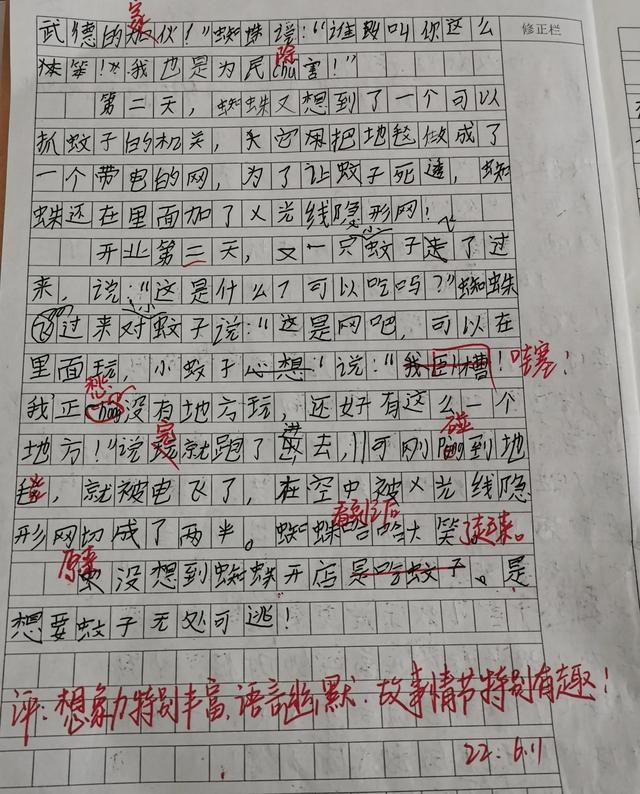 修正栏
武德的家伙!"蜘蛛说:"谁让叫你这么
体笨!"我也是为民除chu害!"
第二天,蜘蛛又想到了一个可以
抓蚊子的机关,它把地毯做成了
一个带电的网,为了让蚊子死透,蜘
蛛还在里面加了X光线隐形网!
开业第二天,又一只小蚊子飞了过
来,说:"这是什么?可以吃吗?"蜘蛛
飞过来对小蚊子说:"这是网吧,可以在
里面玩,小蚊子心想"说:"我槽!哇塞!
我正想没有地方玩,还好有这么一个
地方!"说完就跑了进去,可刚碰到地
毯,就被电飞了,在空中被X光线隐
形网切成了两半。蜘蛛看到后哈哈大笑了起来。
原来没想到蜘蛛开店是吃蚊子。是
想要蚊子无处可逃!
评:想象力特别丰富,语言幽默.故事情节特别有趣!
22.6.11